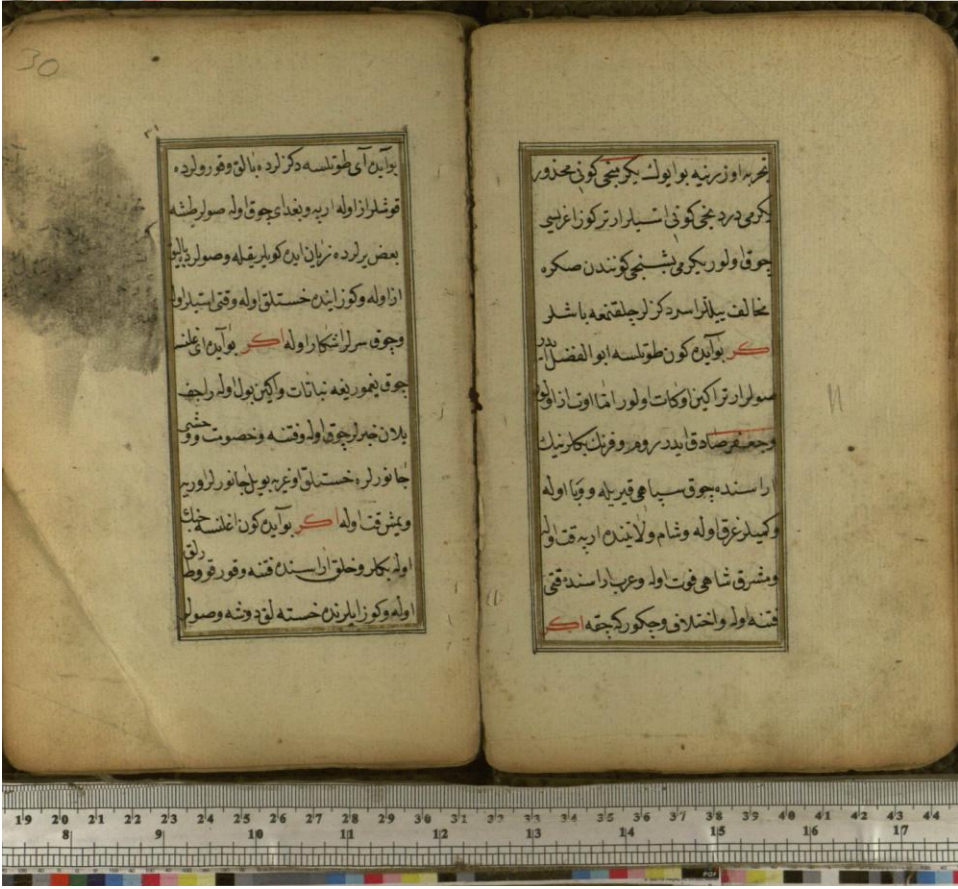 تجربه اوزرنیه بو ایولك یکرمنجی کونی محذور
یکرمی درد نجی کونی استیلر ارتر کوز اغریسی
چوق اولور یکرمی بشنجی کونندن صکره
مخالف ییللر اسر دکزلر چلقنمغه باشلر
اکر بو آیده کون طوتلسه ابو الفضل ایدر
صولر ارتر اکین اوکات اولور اما اوت از اولور
و جعفر صادق ایدر روم و فرنك بکلرنیك
اراسنده چوق سپاهی قیریله و وبا اوله
و کمیلر غرق اوله و شام ولایتنده اریه قت اوله
و مشرق شاهی فوت اوله و عرب اراسنده قتی
فتنه اوله و اختلاف و چکورکه چقه اکر
30
٣١
بو آیده آی طوتلسه دکزلرده بالق و قورولرده
قوشلر از اوله اریه و بغدای چوق اوله صولر طشه
بعض یرلرده زیان ایده کویلر یقیله و صولرده بالیق
از اوله و کوز اینده خستلق اوله و قتی استیلر اوله
و چوق سرلر اشکار اوله اکر بو آیده ای اغلنسه
چوق یغمور یغه نباتات و اکین بول اوله راجف
یلان خبرلر چوق اوله و فتنه و خصومت و وحشی
جانورلره خستلق اوغریه بویل جانورلر اوریه
و یمش قت اوله اکر بو آیده کون اغلنسه جنك
اوله بکلر و خلق اراسنده فتنه و قورقولق
اوله و کوز ایلرنده خسته لق دوشه و صولر